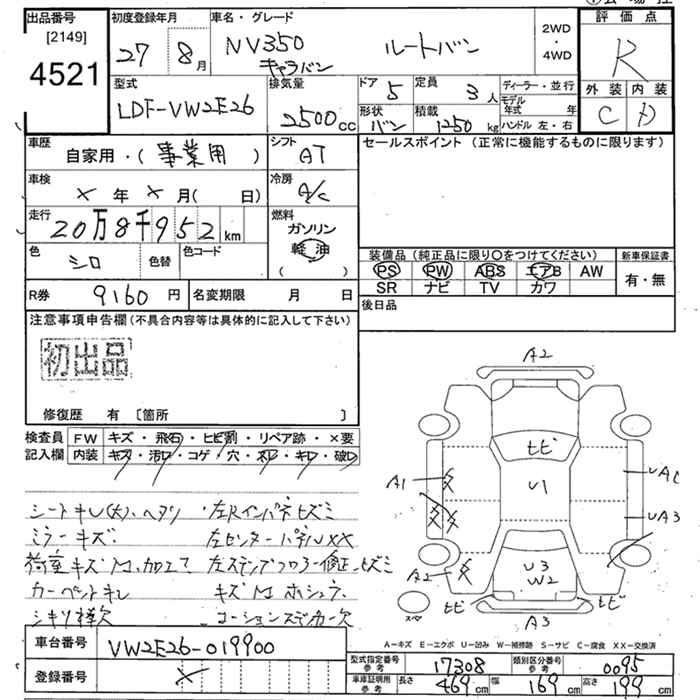 出品番号
[2149]
4521
初度登録年月
27
8月
車名・グレード
NV350
キャラバン
ルートバン
2WD
・
4WD
評価点
R
外装
内装
C
D
型式
LDF-VW2E26
排気量
2500cc
ドア
5
定員
3人
形状
バン
積載
1250kg
ディーラー・並行
モデル年式
年
ハンドル 左・右
車歴
自家用・(事業用)
シフト
AT
セールスポイント (正常に機能するものに限ります)
車検
×年×月( 日)
冷房
A/C
走行
20万8千952km
燃料
ガソリン
軽油
( )
色
シロ
色替
色コード
装備品 (純正品に限り○をつけてください)
PS PW ABS エアB AW
SR ナビ TV カワ
新車保証書
有・無
R券
9160円
名変期限
月
日
後日品
注意事項申告欄(不具合内容等は具体的に記入して下さい)
初出品
修復歴 有 〔箇所 〕
検査員
記入欄
FW
キズ・飛石・ヒビ割・リペア跡・×要
内装
キズ・汚れ・コゲ・穴・ネジ・キレ・破れ
シートキレ(大)、ヘタリ
左Rインパネヒズミ
ミラーキズ
左センターパネルXX
荷室キズ凹、加工て
左ステップフロアー修正、ヒズミ
カーペットキレ
キズ凹
シキリ棒欠
コーションステッカー欠
A2
ヒビ
A1
U1
UA2
UA3
A2
U3
W2
ヒビ
ヒビ
スペア
A3
A-キズ E-エクボ U-凹み W-補修跡 S-サビ C-腐食 XX-交換済
車台番号
VW2E26-019900
登録番号
×
型式指定番号
参考
17308
類別区分番号
参考
0095
車庫証明用
参考
長さ
469cm
幅
169cm
高さ
199cm